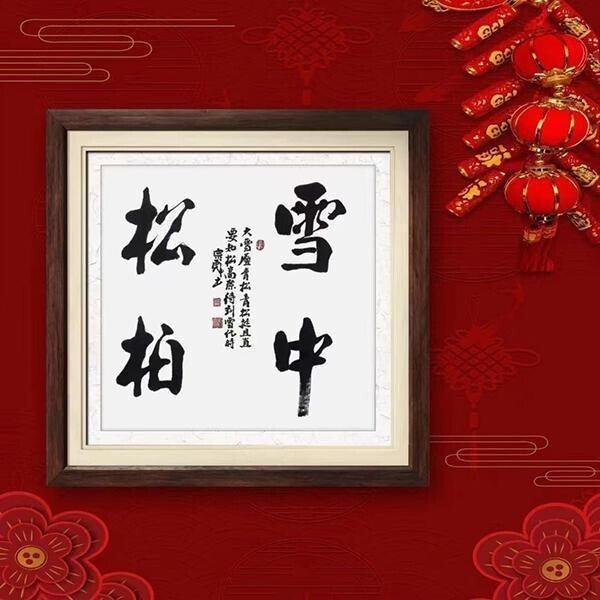 雪中
大雪压青松青松挺且直
要知松高洁待到雪化时
松柏